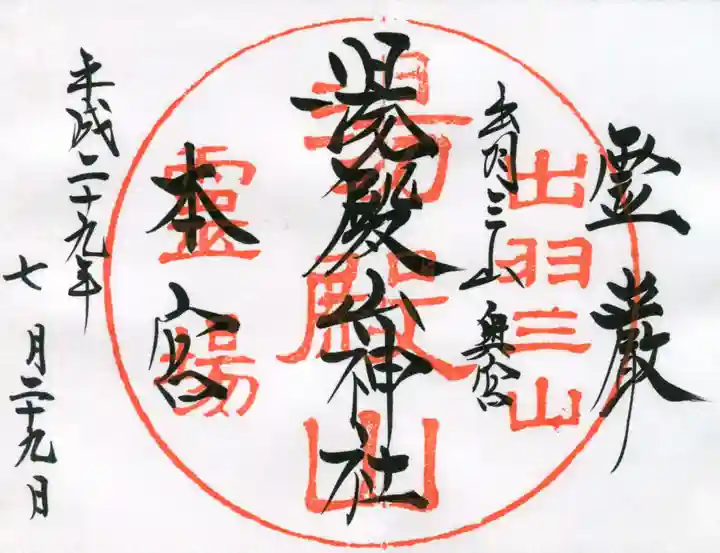 霊厳
出羽三山 奥宮
出羽三山
湯殿山神社
湯殿山
本宮
靈場
平成二十九年
七月二十九日